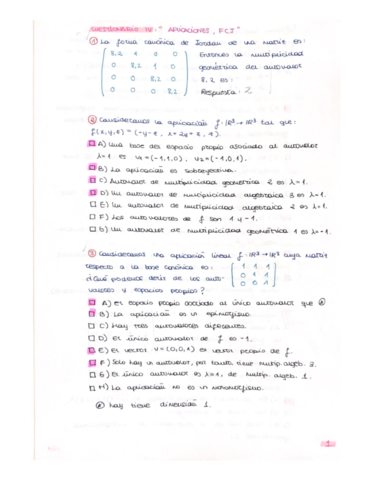 CUESTIONARIO IV: "APLICACIONES, FCJ"
① La forma canónica de Jordan de una matriz es:
8,2 1 0 0 Entonces la multiplicidad
0 8,2 1 0 geométrica del autovalor
0 0 8,2 0 8,2 es:
0 0 0 8,2 Respuesta: 2
② Consideramos la aplicación f: ℝ³ → ℝ³ tal que:
f(x,y,z) = (-y-z, x+2y+z,
A) Una base del espacio propio asociado al autovalor
λ=1 es v₁=(-1,1,0), v₂=(-1,0,1).
B) La aplicación es sobreyectiva.
C) Autovalor de multiplicidad geométrica 2 es λ=1.
D) Un autovalor de multiplicidad algebraica 3 es λ=1.
E) Un autovalor de multiplicidad algebraica 2 es λ=1.
F) Los autovalores de f son 1 y -1.
Un autovalor de multiplicidad geométrica 1 es λ=1.
③ Consideramos una aplicación lineal f: ℝ³ → ℝ³ cuya matriz
respecto a la base canónica es: 1 1 1
¿Qué podemos decir de los auto- 0 1 1
valores y espacios propios? 0 0 1
A) El espacio propio asociado al único autovalor que
B) La aplicación es un epimorfismo.
C) Hay tres autovalores diferentes.
D) El único autovalor de f es -1.
E) El vector v=(0,0,1) es vector propio de f.
F) Solo hay un autovalor, por tanto tiene multip. algeb. 3.
G) El único autovalor es λ=1, de multip. algeb. 1.
H) La aplicación no es un monomorfismo.
hay tiene dimensión 1.
1